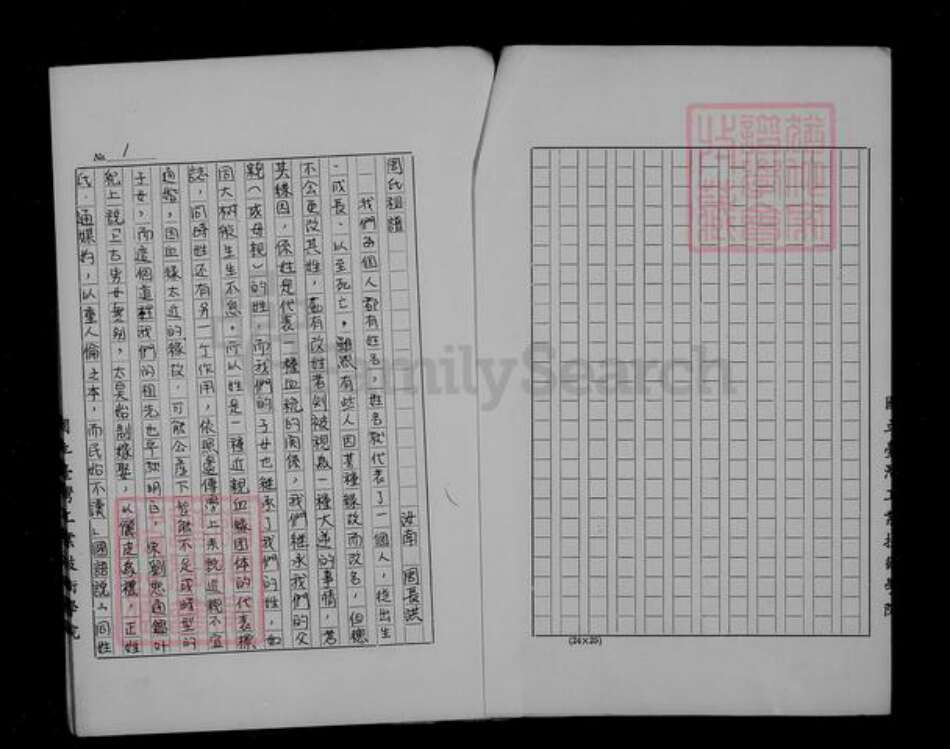 周氏祖譜
汝南 周長洪
一 我們每個人都有姓名，姓名就代表了一個人，從出生
、成長、以至死亡，雖然有些人因某種緣故而改名，但總
不會更改其姓，若有改姓者則被視為一種大逆的事情，考
其緣因，係姓是代表一種血統的關係，我們繼承我們的父
親（或母親）的姓，而我們的子女也繼承了我們的姓，如
同大樹般生生不息。所以姓是一種近親血緣團体的代表標
誌，同時姓還有另一个作用，依照遺傳學上來說近親不宜
通婚，因血緣太近的緣故，可能会產下智能不足或畸型的
子女，而這個道理我們的祖先也早就明白，宋劉恕通鑑外
紀上說「上古男女無別，太昊始制嫁娶，以儷皮為禮，正姓
氏，通媒妁，以重人倫之本，而民始不瀆」國語說「同姓
No. 1
國立臺灣工業技術學院
國立臺灣工業技術學院
(24×25)
FamilySearch